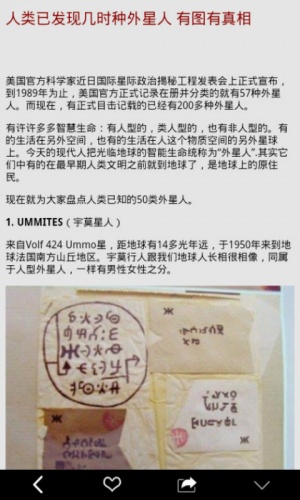 人类已发现几时种外星人 有图有真相
美国官方科学家近日国际星际政治揭秘工程发表会上正式宣布，
到1989年为止，美国官方正式记录在册并分类的就有57种外星
人。而现在，有正式目击记载的已经有200多种外星人。
有许许多多智慧生命：有人型的，类人型的，也有非人型的。有
的生活在另外空间，也有的生活在人这个物质空间的另外星球
上。今天的现代人把光临地球的智能生命统称为“外星人”.其实它
们中有的在最早期人类文明之前就到地球了，是地球上的原住
民。
现在就为大家盘点人类已知的50类外星人。
1. UMMITES（宇莫星人）
来自Volf 424 Ummo星，距地球有14多光年远，于1950年来到地
球法国南方山丘地区。宇莫行人跟我们地球人长相很相像，同属
于人型外星人，一样有男性女性之分。